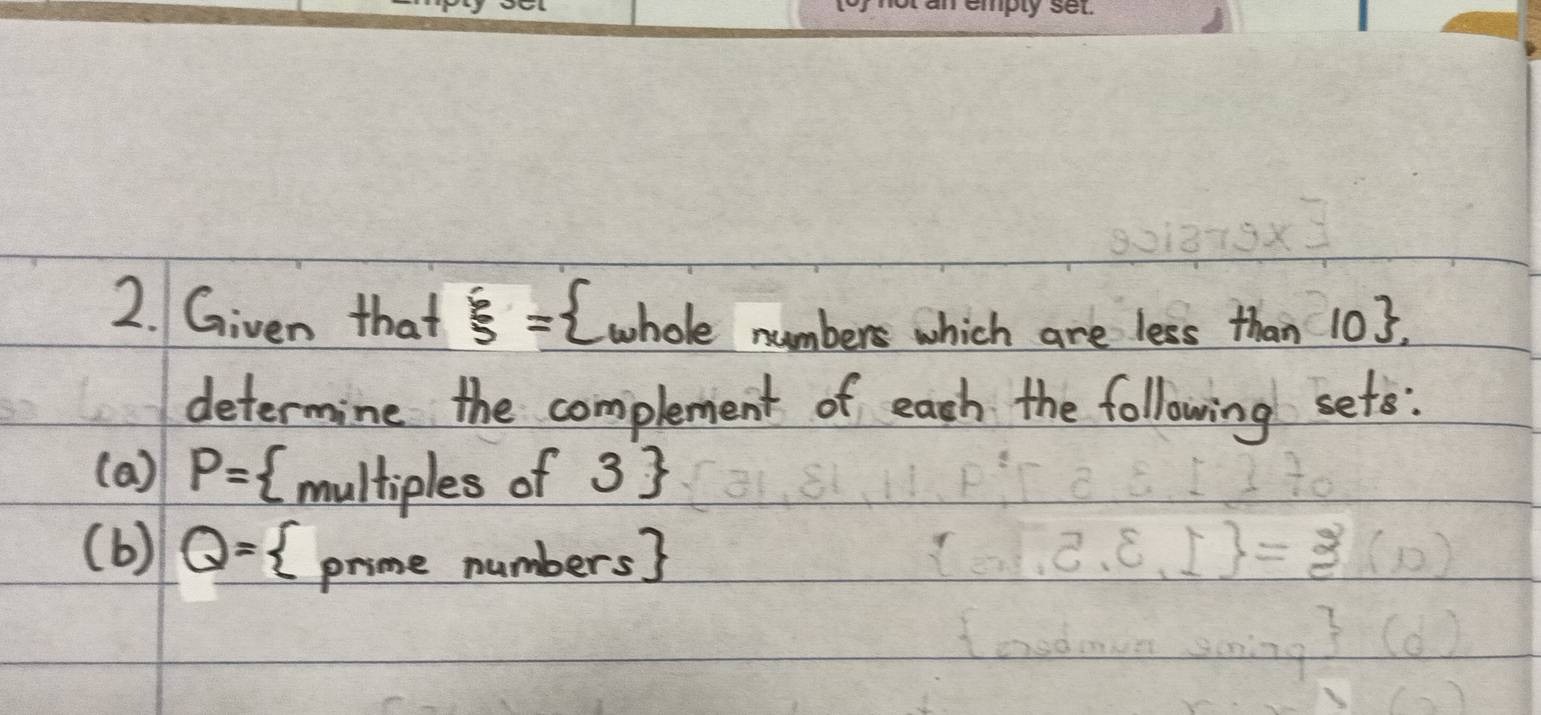 not an empty set.
2. Given that ξ = {whole numbers which are less than 10},
determine the complement of each the following sets:
(a) P = {multiples of 3}
(b) Q = { prime numbers}